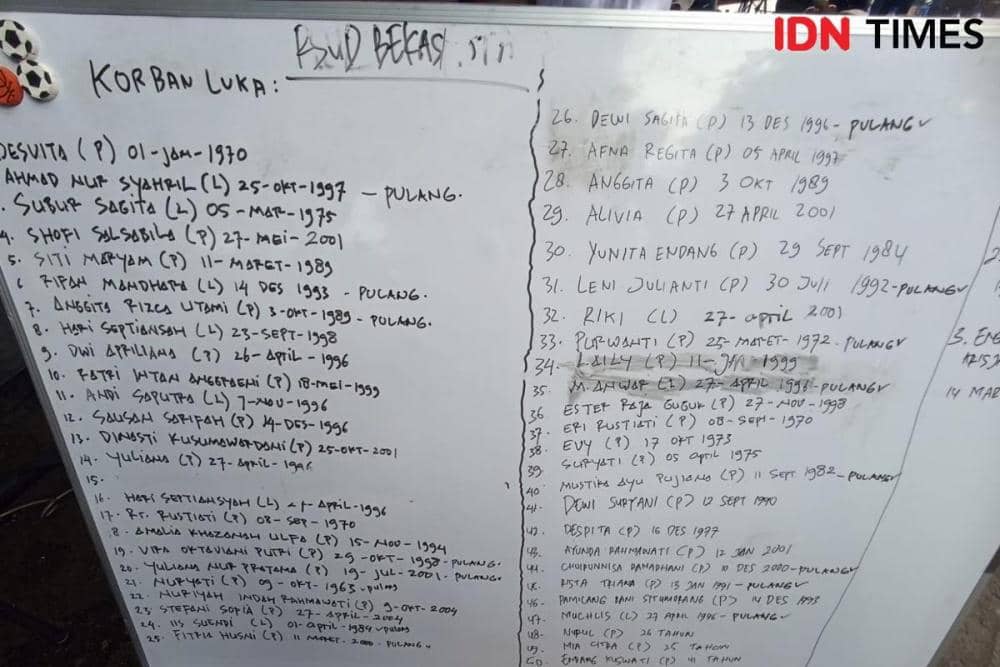 IDN TIMES
RSUD BEKASI
KORBAN LUKA:
DESVITA (P) 01-JAN-1970
AHMAD NUR SYAHRIL (L) 25-OKT-1997 - PULANG.
SUBUR SAGITA (L) 05-MAR-1975
4. SHOFI SALSABILA (P) 27-MEI-2001
5. SITI MARYAM (P) 11-MARET-1989
6 (L) 14 DES 1993 - PULANG.
7. ANGGITA RIZCA UTAMI (P) 3-OKT-1989 - PULANG.
8. HARI SEPTIANSAH (L) 23-SEPT-1998
9. DWI APRILIANA (P) 26-APRIL-1996
10. INTAN ANGGRAENI (P) 18-MEI-1999
11. ANDI SAPUTRA (L) 7-NOV-1996
12. SAUSAN SARIFAH (P) 14-DES-1996
13. DINASTI KUSUMAWARDANI (P) 25-OKT-2001
14. YULIANA (P) 27-APRIL-
15.
16. HARI SEPTIANSYAH (L) -APRIL-1996
17. RT. RUSTIATI (P) 08-SEP-1970
8. AMALIA KHAZANAH ULFA (P) 15-NOV-1994
19. VIRA OKTAVIANI PUTRI (P) 29-OKT-1998-PULANG.
20. YULIANA NUR PRATAMA (P) 19-JUL-2001-PULANG.
21. NURYATI (P) 09-OKT-1963-PULANG
22. NURIYAH INDAH RAHMAWATI (P) 9-OKT-2004
23 STEFANI SOFIA (P) 27-APRIL-2004
24. IIS SUENDI (L) 01-APRIL-1984-PULANG
25. FITRIA HUSNI (P) 11 MARET-2000-PULANG
26. DEWI SAGITA (P) 13 DES 1996-PULANG✓
27. AFNA REGITA (P) 05 APRIL 1997
28. ANGGITA (P) 3 OKT 1989
29. ALIVIA (P) 27 APRIL 2001
30. YUNITA ENDANG (P) 29 SEPT 1984
31. LENI JULIANTI (P) 30 JULI 1992-PULANG✓
32. RIKI (L) 27-APRIL 2001
33. PURWANTI (P) 25-MARET-1972-PULANG✓
34. LAILY (P) 11-JAN-1999
35. M. ANWAR (L) 27-APRIL 1996-PULANG✓
36 ESTER RAJA GUGUK (P) 27-NOV-1998
37. ERI RUSTIATI (P) 08-SEPT-1970
38. EVY (P) 17 OKT 1973
39. SURYATI (P) 05 APRIL 1975
40. MUSTIKA AYU PUJIANA (P) 11 SEPT 1982-PULANG✓
41. DEWI SURYANI (P) 12 SEPT 1990
42. DESPITA (P) 16 DES 1977
43. AYUNDA RAHMAWATI (P) 12 JAN 2001
44. CHOIRUNNISA RAMADHANI (P) 10 DES 2000-PULANG✓
45. RISTA TRIANA (P) 13 JAN 1991-PULANG✓
46. PAMILANG RANI SITUMORANG (P) 14 DES 1993
47. MUCHLIS (L) 27 APRIL 1996-PULANG✓
48. NURUL (P) 26 TAHUN
49. MIA CITRA (P) 25 TAHUN
50. ENDANG KUSWATI (P) 41 TAHUN
3.
14 MAR